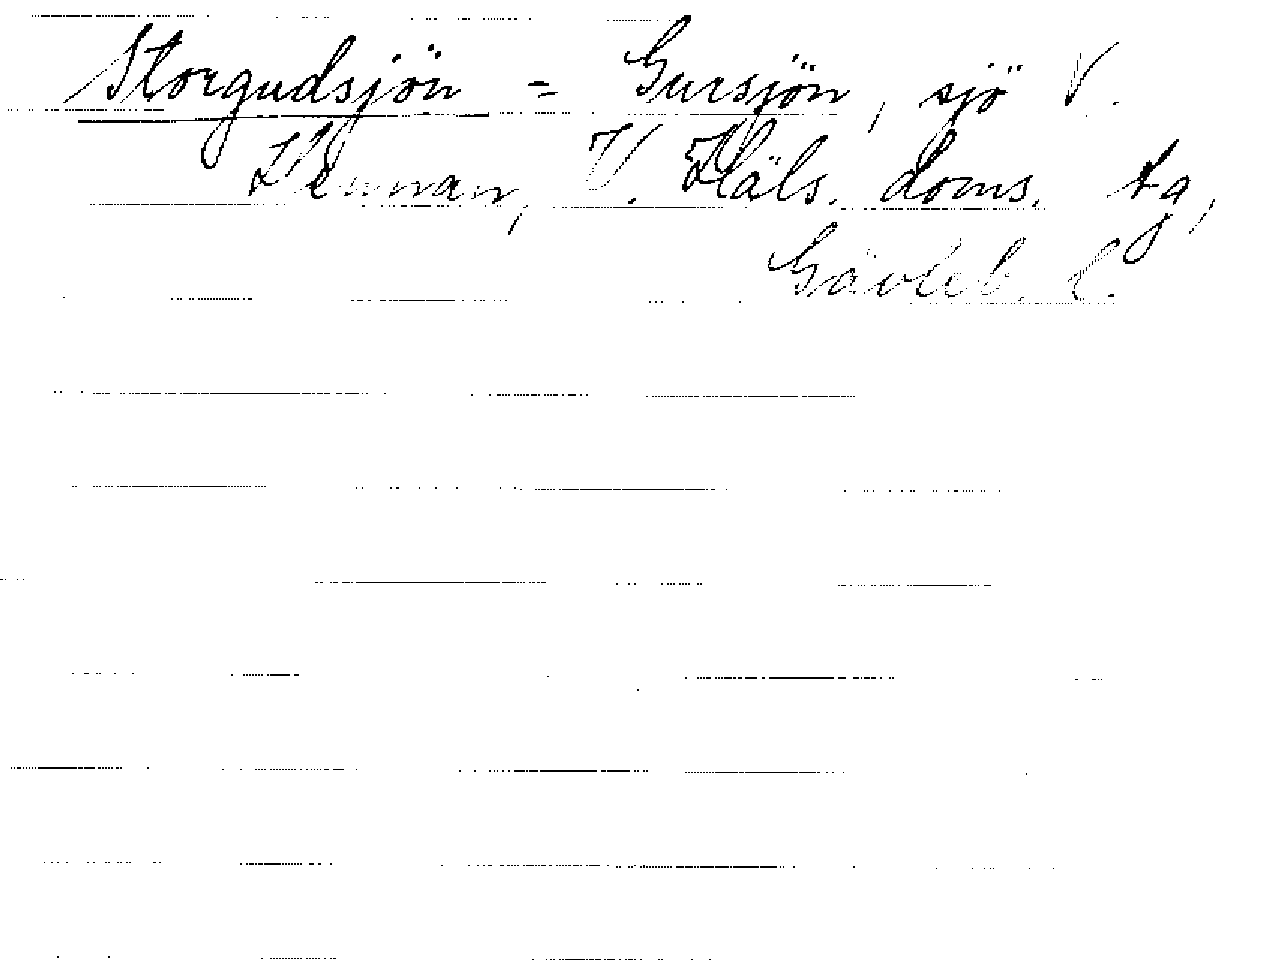 Storgudsjön = Gursjön, sjö V.
Hennan, V. Häls. doms. tg,
Gävleb. l.